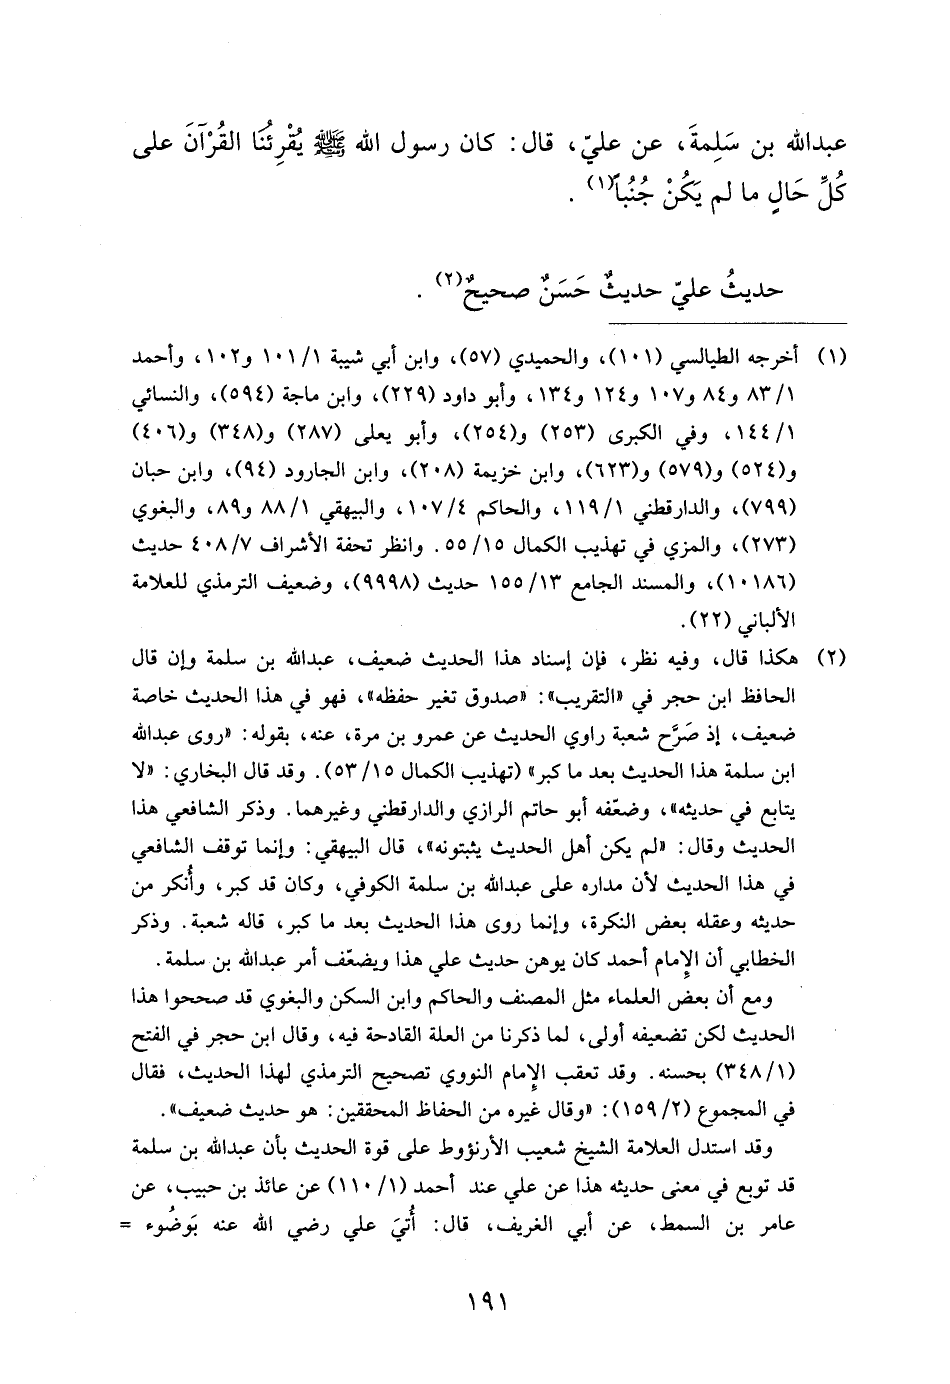 عبدالله بن سَلِمةَ، عن عليّ، قال: كان رسول الله ﷺ يُقْرِئُنَا القُرْآنَ على
كُلِّ حَالٍ ما لم يَكُنْ جُنُباً(١) .
حديثُ عليّ حديثٌ حَسَنٌ صحيحٌ(٢) .
(١) أخرجه الطيالسي (١٠١)، والحميدي (٥٧)، وابن أبي شيبة ١/ ١٠١ و١٠٢، وأحمد
١/ ٨٣ و٨٤ و١٠٧ و١٢٤ و١٣٤، وأبو داود (٢٢٩)، وابن ماجة (٥٩٤)، والنسائي
١/ ١٤٤، وفي الكبرى (٢٥٣) و(٢٥٤)، وأبو يعلى (٢٨٧) و(٣٤٨) و(٤٠٦)
و(٥٢٤) و(٥٧٩) و(٦٢٣)، وابن خزيمة (٢٠٨)، وابن الجارود (٩٤)، وابن حبان
(٧٩٩)، والدارقطني ١/ ١١٩، والحاكم ٤/ ١٠٧، والبيهقي ١/ ٨٨ و٨٩، والبغوي
(٢٧٣)، والمزي في تهذيب الكمال ١٥/ ٥٥. وانظر تحفة الأشراف ٧/ ٤٠٨ حديث
(١٠١٨٦)، والمسند الجامع ١٣/ ١٥٥ حديث (٩٩٩٨)، وضعيف الترمذي للعلامة
الألباني (٢٢).
(٢) هكذا قال، وفيه نظر، فإن إسناد هذا الحديث ضعيف، عبدالله بن سلمة وإن قال
الحافظ ابن حجر في «التقريب»: «صدوق تغير حفظه»، فهو في هذا الحديث خاصة
ضعيف، إذ صَرَّح شعبة راوي الحديث عن عمرو بن مرة، عنه، بقوله: «روى عبدالله
ابن سلمة هذا الحديث بعد ما كبر» (تهذيب الكمال ١٥/ ٥٣). وقد قال البخاري: «لا
يتابع في حديثه»، وضعّفه أبو حاتم الرازي والدارقطني وغيرهما. وذكر الشافعي هذا
الحديث وقال: «لم يكن أهل الحديث يثبتونه»، قال البيهقي: وإنما توقف الشافعي
في هذا الحديث لأن مداره على عبدالله بن سلمة الكوفي، وكان قد كبر، وأُنكر من
حديثه وعقله بعض النكرة، وإنما روى هذا الحديث بعد ما كبر، قاله شعبة. وذكر
الخطابي أن الإمام أحمد كان يوهن حديث علي هذا ويضعّف أمر عبدالله بن سلمة.
ومع أن بعض العلماء مثل المصنف والحاكم وابن السكن والبغوي قد صححوا هذا
الحديث لكن تضعيفه أولى، لما ذكرنا من العلة القادحة فيه، وقال ابن حجر في الفتح
(١/ ٣٤٨) بحسنه. وقد تعقب الإمام النووي تصحيح الترمذي لهذا الحديث، فقال
في المجموع (٢/ ١٥٩): «وقال غيره من الحفاظ المحققين: هو حديث ضعيف».
وقد استدل العلامة الشيخ شعيب الأرنؤوط على قوة الحديث بأن عبدالله بن سلمة
قد توبع في معنى حديثه هذا عن علي عند أحمد (١/ ١١٠) عن عائذ بن حبيب، عن
عامر بن السمط، عن أبي الغريف، قال: أُتيَ علي رضي الله عنه بَوضُوء =
١٩١